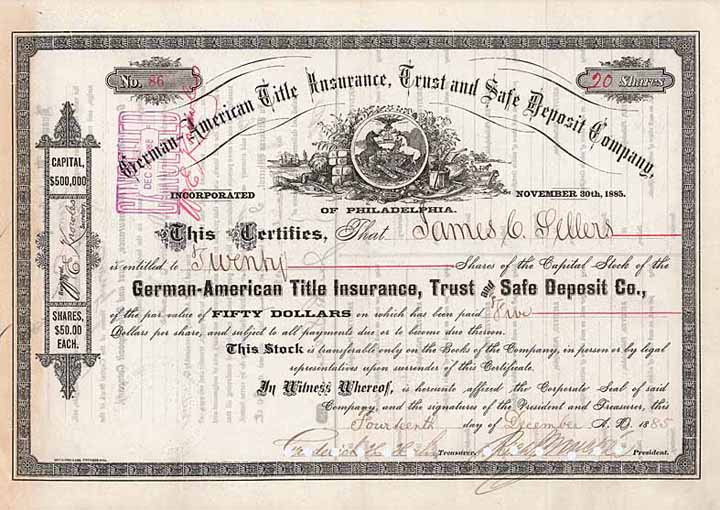 No. 86
20 Shares
German-American Title Insurance, Trust and Safe Deposit Company,
CANCELLED
DEC
INCORPORATED
NOVEMBER 30th, 1885.
OF PHILADELPHIA.
CAPITAL, $500,000
W. E. Knowles
SHARES, $50.00 EACH.
This Certifies, That James C. Sellers
is entitled to Twenty Shares of the Capital Stock of the
German-American Title Insurance, Trust and Safe Deposit Co.,
of the par value of FIFTY DOLLARS on which has been paid Five
Dollars per share, and subject to all payments due or to become due thereon.
This Stock is transferable only on the Books of the Company, in person or by legal
representatives upon surrender of this Certificate.
In Witness Whereof, is hereunto affixed the Corporate Seal of said
Company, and the signatures of the President and Treasurer, this
Fourteenth day of December A. D. 1885
Treasurer.
President.